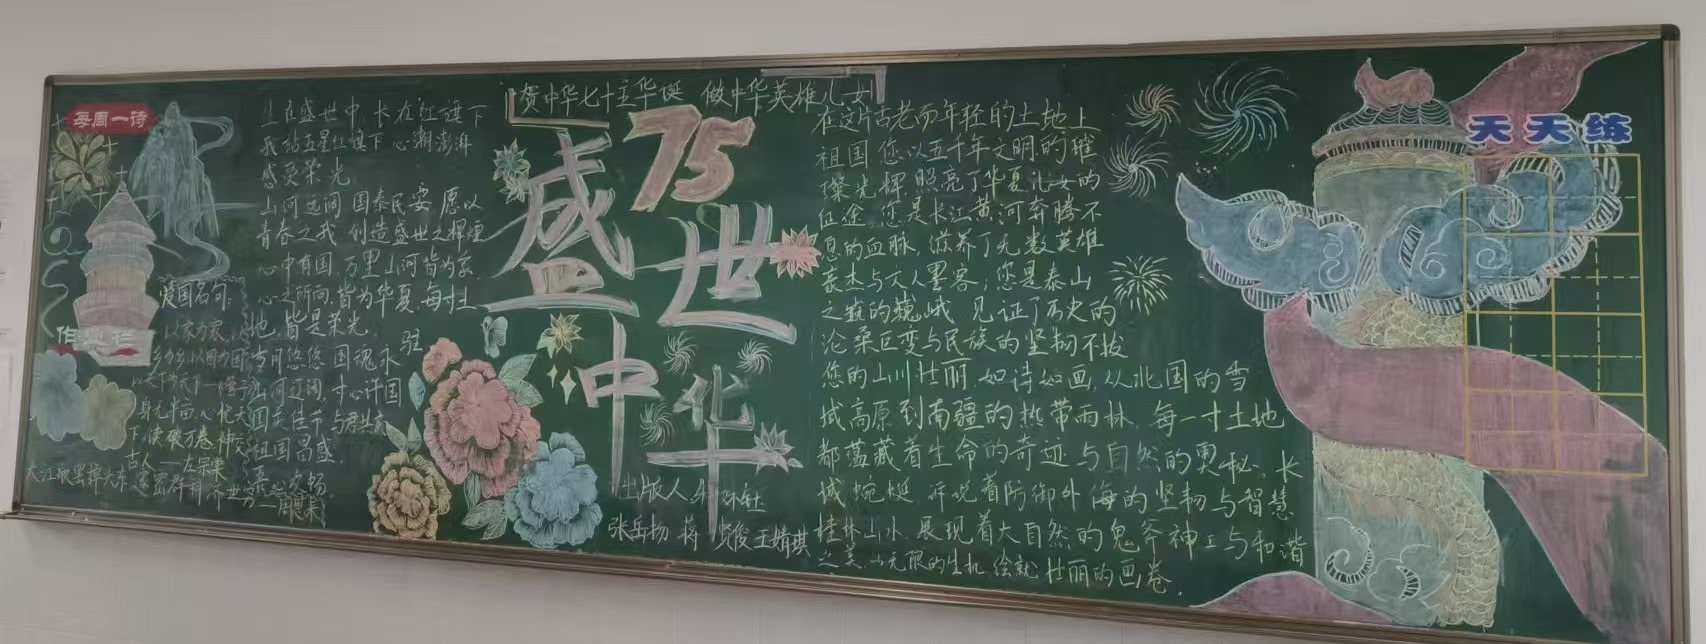 每周一诗
生在盛世中,长在红旗下
我站五星红旗下 心潮澎湃
感受荣光
山河辽阔 国泰民安 愿以
青春之我 创造盛世之辉煌
心中有国,万里山河皆为家
心之所向,皆为华夏,每寸土
地,皆是荣光。
岁月悠悠 国魂永驻
山河辽阔,寸心许国
国庆佳节,与君共
祖国昌盛,
爱国名句:
以家为家,
以天下为天下
身无半亩,心忧天
下,读破万卷 神交
古人——左宗棠
大江歌罢掉头东,邃密群科济世穷——周恩来
贺中华七十五华诞 做中华英雄儿女
75
盛世
中华
出版人
张岳扬 蒋 贤俊 王婧琪
在这片古老而年轻的土地上
祖国 您以五千年文明的璀
璨光辉 照亮了华夏儿女的
征途。您是长江黄河奔腾不
息的血脉,滋养了无数英雄
豪杰与文人墨客;您是泰山
之巅的巍峨 见证了历史的
沧桑巨变与民族的坚韧不拔
您的山川壮丽,如诗如画,从北国的雪
域高原到南疆的热带雨林,每一寸土地
都蕴藏着生命的奇迹与自然的奥秘。长
城蜿蜒 诉说着防御外侮的坚韧与智慧
桂林山水,展现着大自然的鬼斧神工与和谐
之美,以无限的生机,绘就壮丽的画卷。
天天练